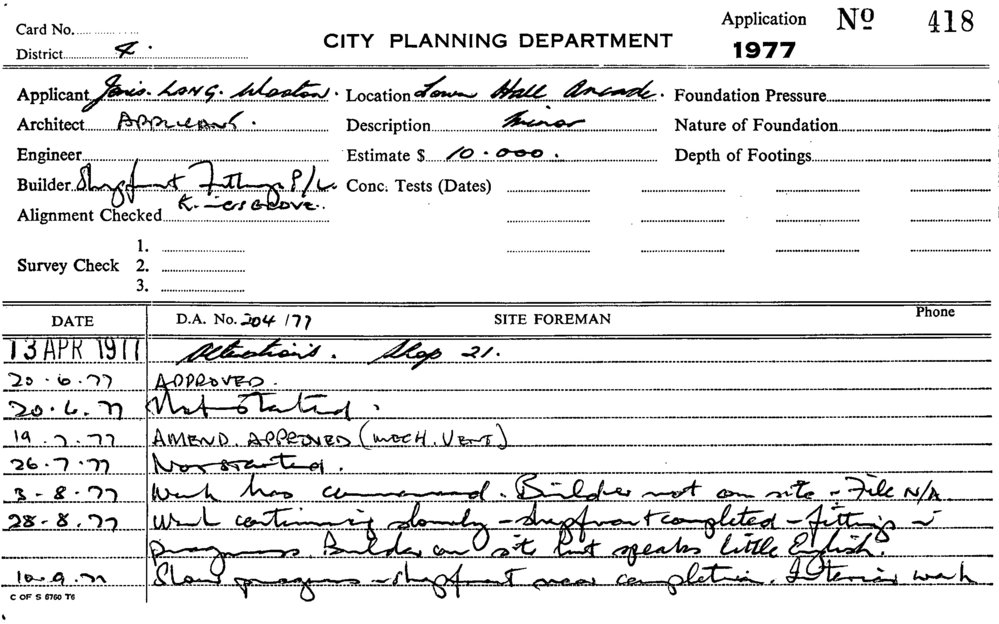 Card No.
CITY PLANNING DEPARTMENT
Application Nº 418
District 4.
1977
Applicant Long Location Town Hall Arcade. Foundation Pressure
Architect APPLICANT. Description Minor Nature of Foundation
Engineer Estimate $ 10.000. Depth of Footings
Builder Shopfront Fittings P/L. Conc. Tests (Dates)
Alignment Checked
1.
Survey Check 2.
3.
DATE D.A. No. 204/77 SITE FOREMAN Phone
13 APR 1977 Alterations. Shop 21.
20.6.77 APPROVED.
20.6.77 Not started.
19.7.77 AMEND. APPROVED (MECH. VENT)
26.7.77 Not started.
3-8.77 Work has commenced. Builder not on site - File N/A
28-8.77 Work continuing slowly - shopfront completed - fittings in
progress. Builder on site but speaks little English.
10.9.77 Slow progress - shopfront near completion. Interior work
C OF S 5760 T6